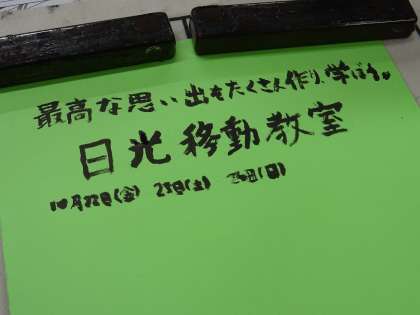 最高な思い出をたくさん作り、学ぼう。
日光移動教室
10月22日(金) 23日(土) 24日(日)